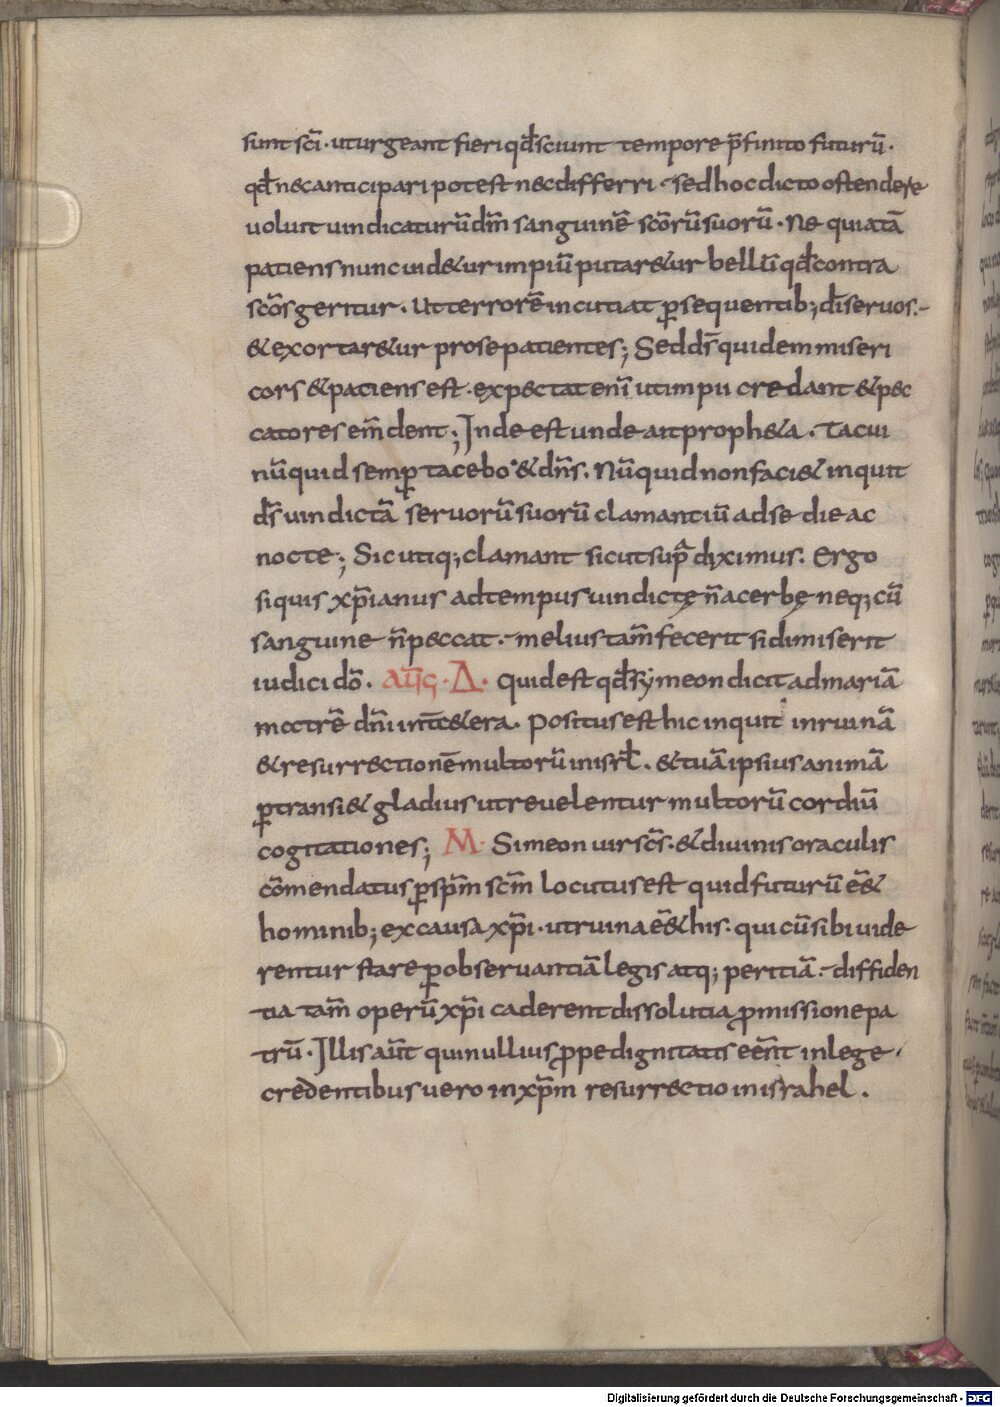 sunt sc̄i · ut urgeant fieri qđ sciunt tempore p̄finito futurū ·
qđ nec anticipari potest nec differri · sed hoc dicto ostendere
uoluit uindicaturū dm̄ sanguinē scōrū suorū · Ne quia tā
patiens nunc uid&ur impiū putar&ur bellū qđ contra
scōs geritur · Ut terrorē incutiat ꝑsequentib; dī seruos ·
& exortar&ur pro se patientes; Sed ds̄ quidem miseri
cors & paciens est · expectat enī ut impii credant & pec
catores em̄dent; Inde est unde ait proph&a · Tacui
nūquid semꝑ tacebo · & dn̄s · Nūquid non faci& inquit
ds̄ uindictā seruorū suorū clamantiū ad se die ac
nocte; Sic utiq; clamant sicut sup̄ dyximus · Ergo
si quis xp̄ianus ad tempus uindictę n̄ acerbę neq; cū
sanguine n̄ peccat · melius tam̄ fecerit si dimiserit
iudici dō · AUḠ · Δ · Quid est qđ Symeon dicit ad mariā
mctrē dn̄i int̄ c&era · Positus est hic inquit in ruinā
& resurrectionē multorū in isrł · & tuā ipsius animā
ꝑtransi& gladius ut reuelentur multorū cordiū
cogitationes; M · Simeon uir sc̄s · & diuinis oraculis
cōmendatus ꝑ spm̄ scm̄ locutus est quid futurū eē&
hominib; ex causa xp̄i · ut ruina eē& his · qui cū sibi uide
rentur stare ꝑ obseruantiā legis atq; peritiā · diffiden
tia tam̄ operū xp̄i caderent dissoluti a ꝓmissione pa
trū · Illis aūt qui nullius ꝓpe dignitatis eēnt in lege ·
credentibus uero in xp̄m resurrectio in israhel ·
Digitalisierung gefördert durch die Deutsche Forschungsgemeinschaft - DFG